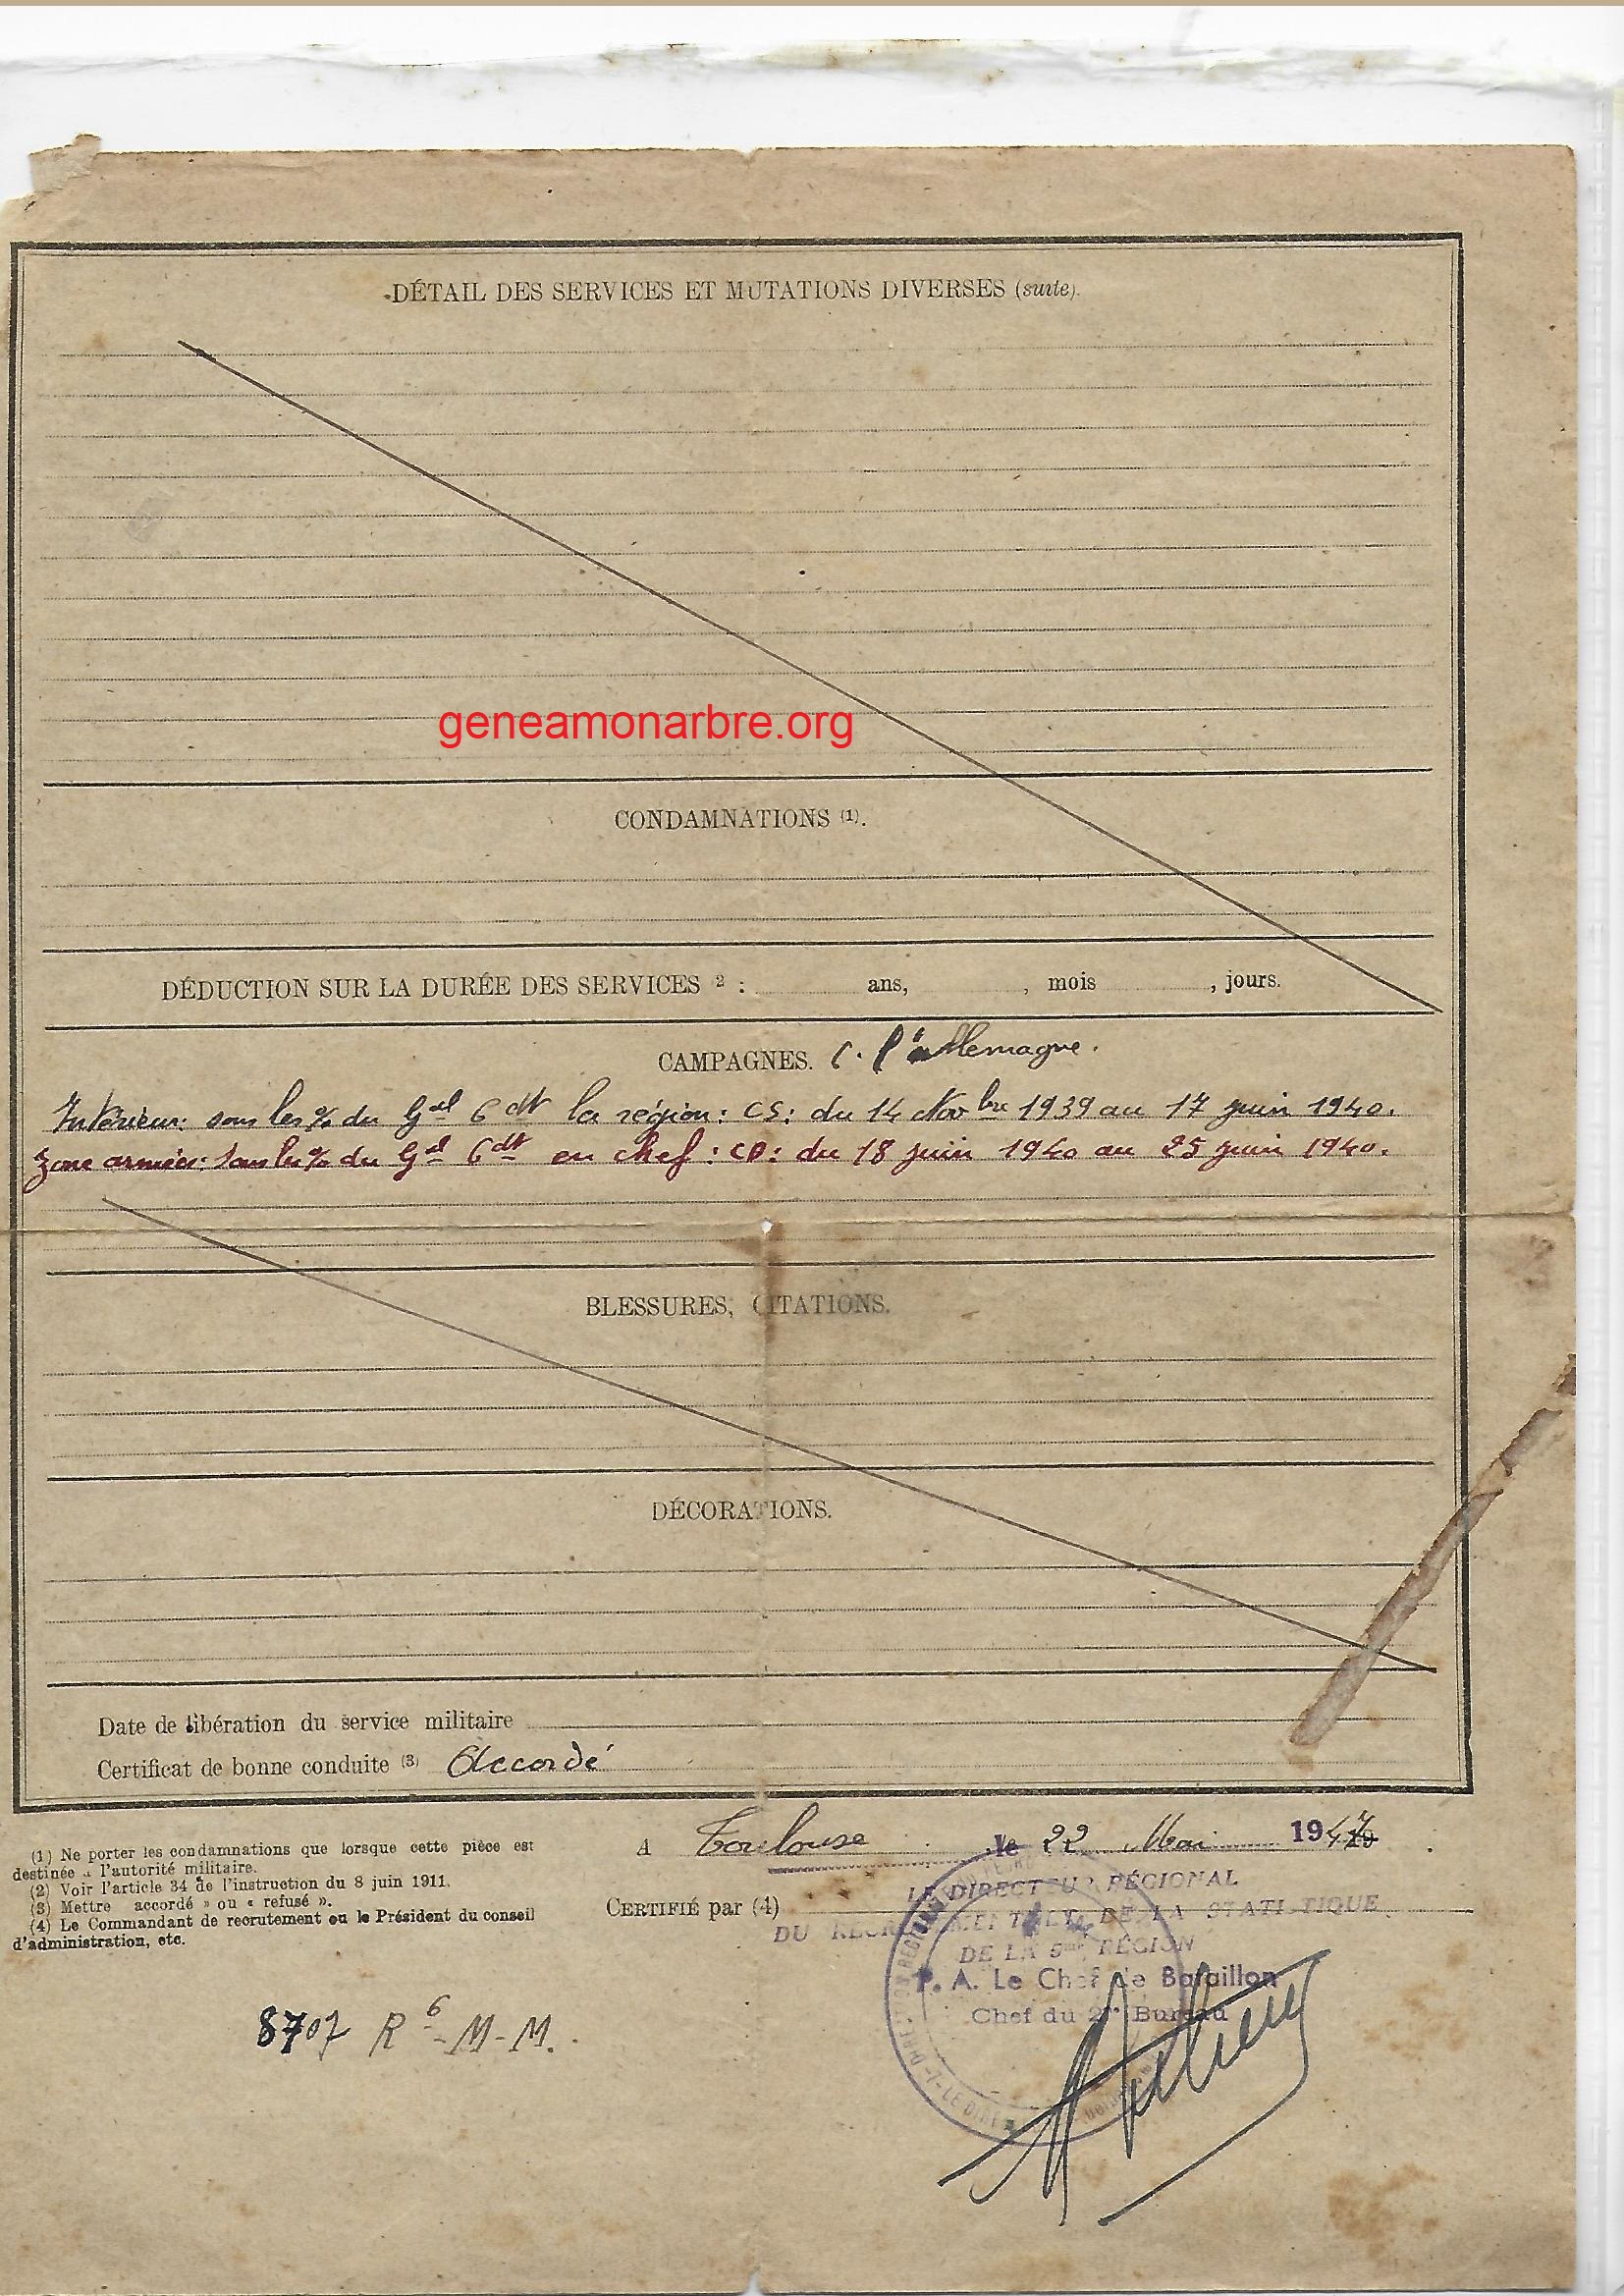 DÉTAIL DES SERVICES ET MUTATIONS DIVERSES (suite).
geneamonarbre.org
CONDAMNATIONS (1).
DÉDUCTION SUR LA DURÉE DES SERVICES 2 : ans, , mois , jours.
CAMPAGNES. C. l'Allemagne.
Intérieur: sous les % du Gal Cdt la région: CS: du 14 Novbre 1939 au 17 juin 1940.
Zone armées: sous les % du Gal Cdt en chef: CD: du 18 juin 1940 au 25 juin 1940.
BLESSURES, CITATIONS.
DÉCORATIONS.
Date de libération du service militaire
Certificat de bonne conduite (3) Accordé
(1) Ne porter les condamnations que lorsque cette pièce est
destinée à l'autorité militaire.
(2) Voir l'article 34 de l'instruction du 8 juin 1911.
(3) Mettre accordé » ou « refusé ».
(4) Le Commandant de recrutement ou le Président du conseil
d'administration, etc.
A Toulouse le 22 Mai 1947
CERTIFIÉ par (4)
LE DIRECTEUR RÉGIONAL
DU RECRUTEMENT ET DE LA STATISTIQUE
DE LA 5me RÉGION
P. A. Le Chef de Bataillon
Chef du 2me Bureau
8707 R6-M-M.